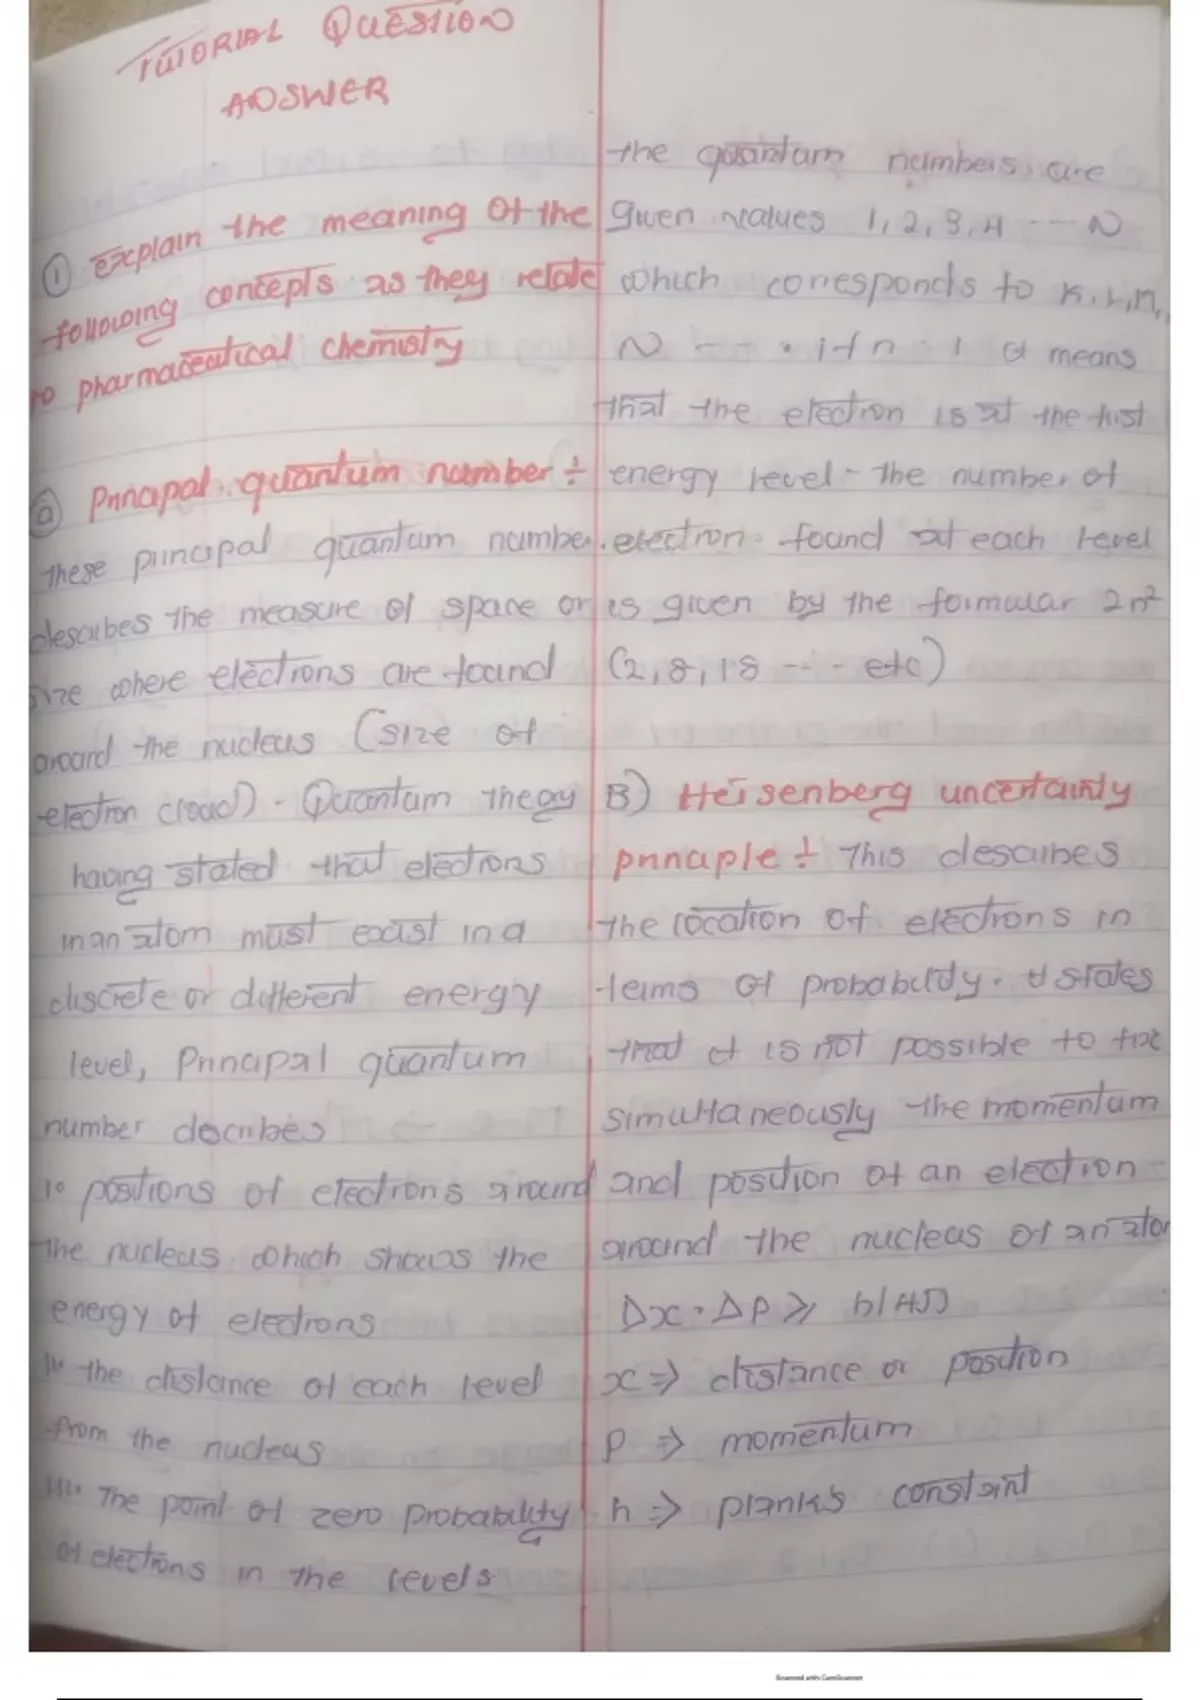 TUTORIAL QUESTION
ANSWER
① Explain the meaning of the
following concepts as they relate
to pharmaceutical chemistry
ⓐ Principal quantum number ÷
These principal quantum number
describes the measure of space or
size where electrons are found
around the nucleus (size of
electron cloud). Quantum theory
having stated that electrons
in an atom must exist in a
discrete or different energy
level, Principal quantum
number describes
i. positions of electrons around
the nucleus which shows the
energy of electrons
ii. the distance of each level
from the nucleus
iii. The point of zero probability
of electrons in the levels
the quantum numbers are
given values 1, 2, 3, 4 --- N
which corresponds to K, L, M,
N --- . If n = 1 it means
that the electron is at the first
energy level - the number of
electron found at each level
is given by the formular 2n²
(2, 8, 18 --- etc)
B) Heisenberg uncertainty
principle ÷ This describes
the location of electrons in
terms of probability. It states
that it is not possible to fix
simultaneously the momentum
and position of an electron
around the nucleus of an atom
Δx · Δp ≥ h/4π
x ⇒ distance or position
p ⇒ momentum
h ⇒ plank's constant
Scanned with CamScanner